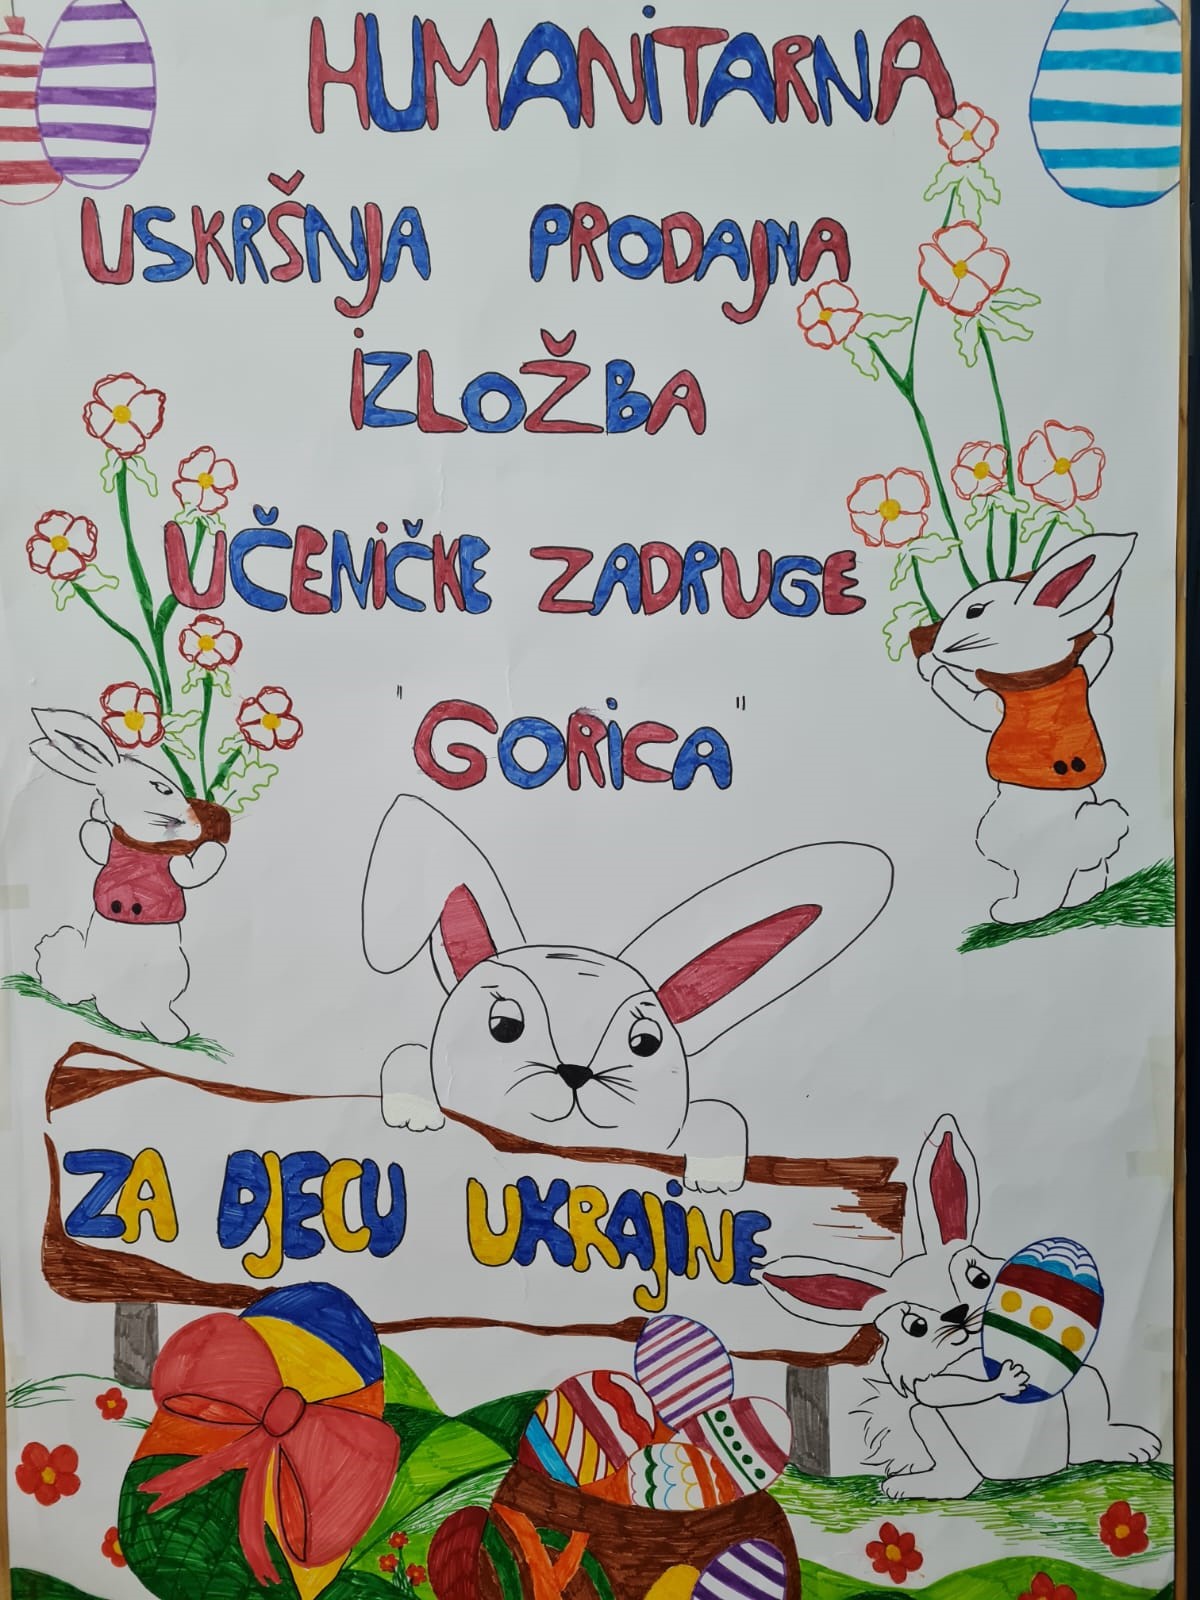 HUMANITARNA
USKRŠNJA PRODAJNA
IZLOŽBA
UČENIČKE ZADRUGE
"GORICA"
ZA DJECU UKRAJINE